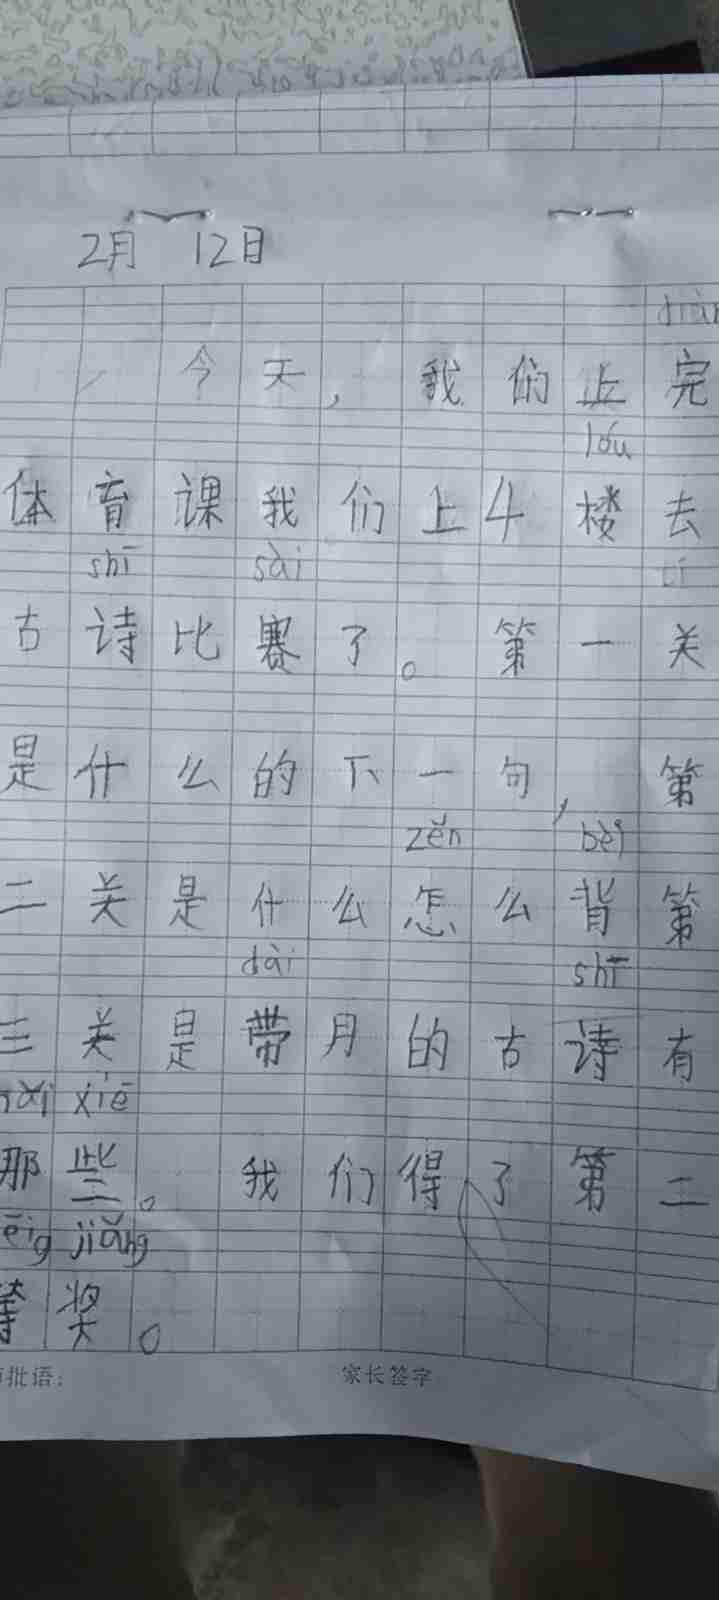 2月 12日
今天，我们上完
lóu
体育课我们上4楼去
shī sài
古诗比赛了。第一关
是什么的下一句，第
zěn bèi
二关是什么怎么背第
dài shī
三关是带月的古诗有
xiē
那些。我们得了第二
jiǎng
等奖。
批语： 家长签字